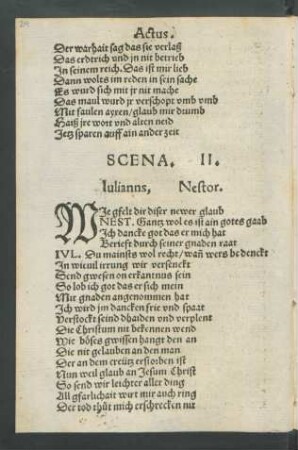 Actus.
Der warhait sag das sie verlaß
Das erdtrich und jn nit betrieb
In seinem reich. Das ist mir lieb
Dann wolts im reden in sein sache
Es wurd sich mit jr nit mache
Das maul wurd jr verschopt vmb vmb
Mit faulen ayren / glaub mir drumb
Haiß jre wort vnd alten neid
Jetz sparen auff ain ander zeit
SCENA. II.
Iulianns, Nestor.
WIe gfelt dir diser newer glaub
NEST. Gantz wol es ist ain gotes gaab
Ich dancke got das er mich hat
Berieft durch seiner gnaden raat
IVL. Du mainsts wol recht / wañ wers bedenckt
In wieuil irrung wir versenckt
Send gwesen on erkantnus sein
So lob ich got das er sich mein
Mit gnaden angenommen hat
Ich wird jm dancken frie vnd spaat
Verstockt seind dhaiden vnd verplent
Die Christum nit bekennen wend
Wie böses gwissen hangt den an
Die nit gelauben an den man
Der an dem creütz erstorben ist
Nun weil glaub an Jesum Christ
So send wir leichter aller ding
All gfarlichait wirt mir auch ring
Der tod thůt mich erschrecken nit